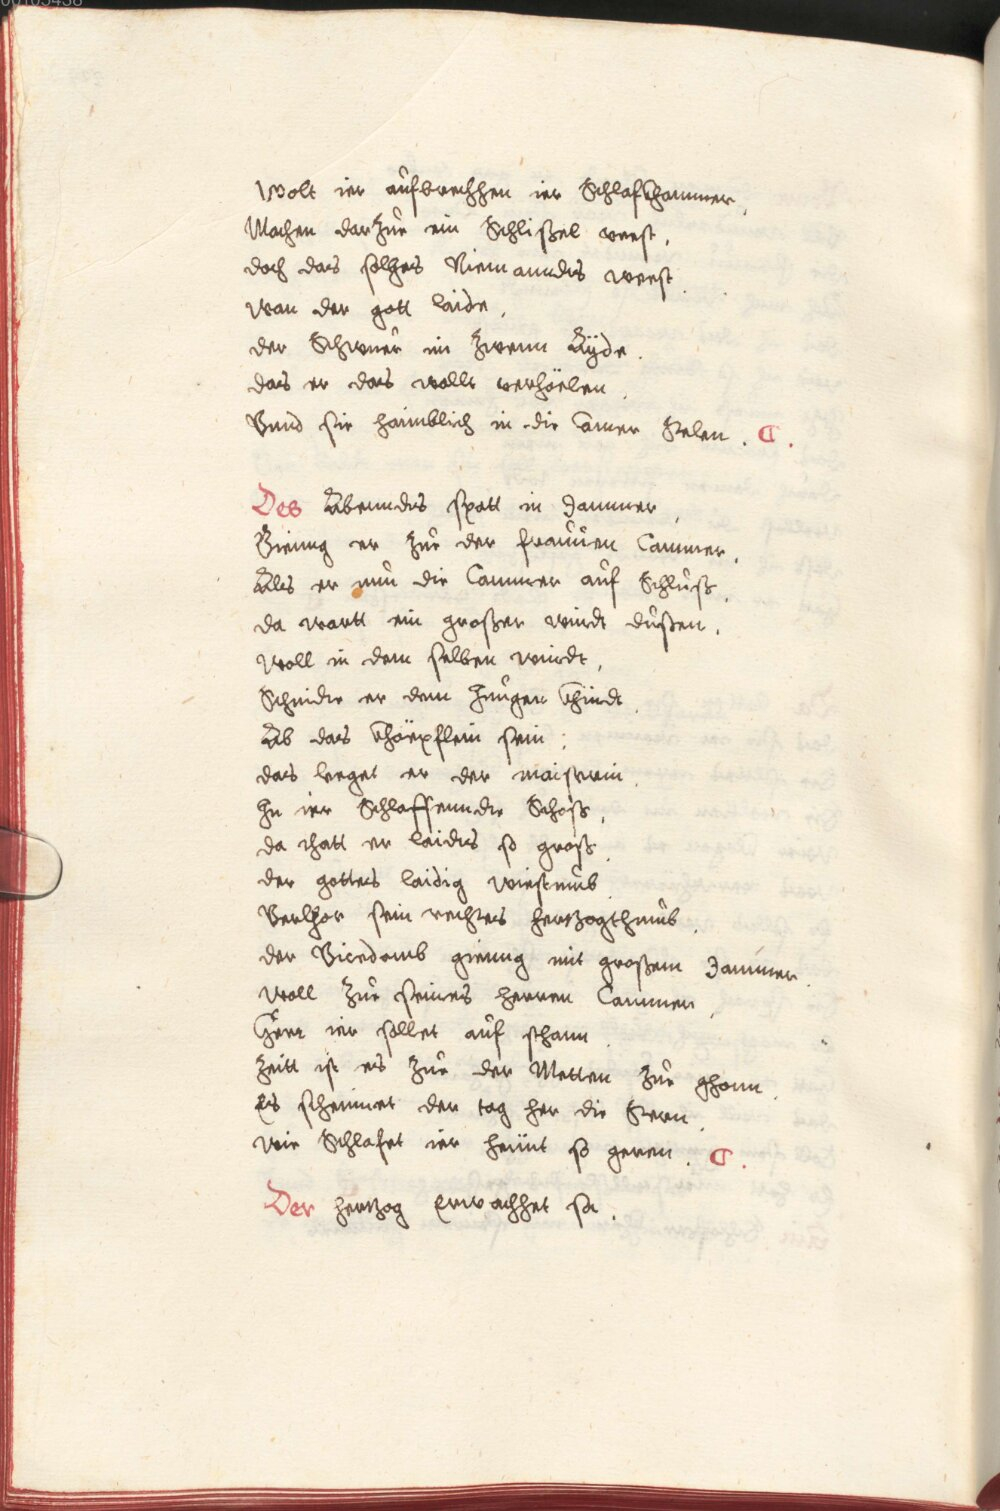 Wolt ier aufbrechhen ier Schlafkhammer,
Machen darzue ein Schlißel veest,
doch das solhes Niemanndts weest.
Wan der gott laide,
der Schwuer im zwenn Äyde.
das er das wollt verhöelen.
Vnnd sie haimblich in die Camer Stelen.
Des Abenndts spatt in Jammer,
Gienng er zue der frauuen Cammer,
Als er nun die Cammer auf Schluß,
da wartt ein großer windt dußen,
Woll in dem selben windt,
Schnidte er dem Jungen Khindt
Ab das Khöepflein sein:
das leeget er der maistrein.
In ier Schlaffenndte Schoß,
da thatt er laides so groß.
der gottes laidig wiestumb
Verlhor sein rechtes hertzogthumb.
der Vicedomb gienng mit großem Jammer.
Woll zue seines herren Cammer,
Herr ier sollet auf sthann.
Zeitt ist es zue der Metten zue ghonn.
Es scheinnet der tag her die Stern.
Wie Schlafet ier heünt so geren.
Der hertzog Erwachhet so.